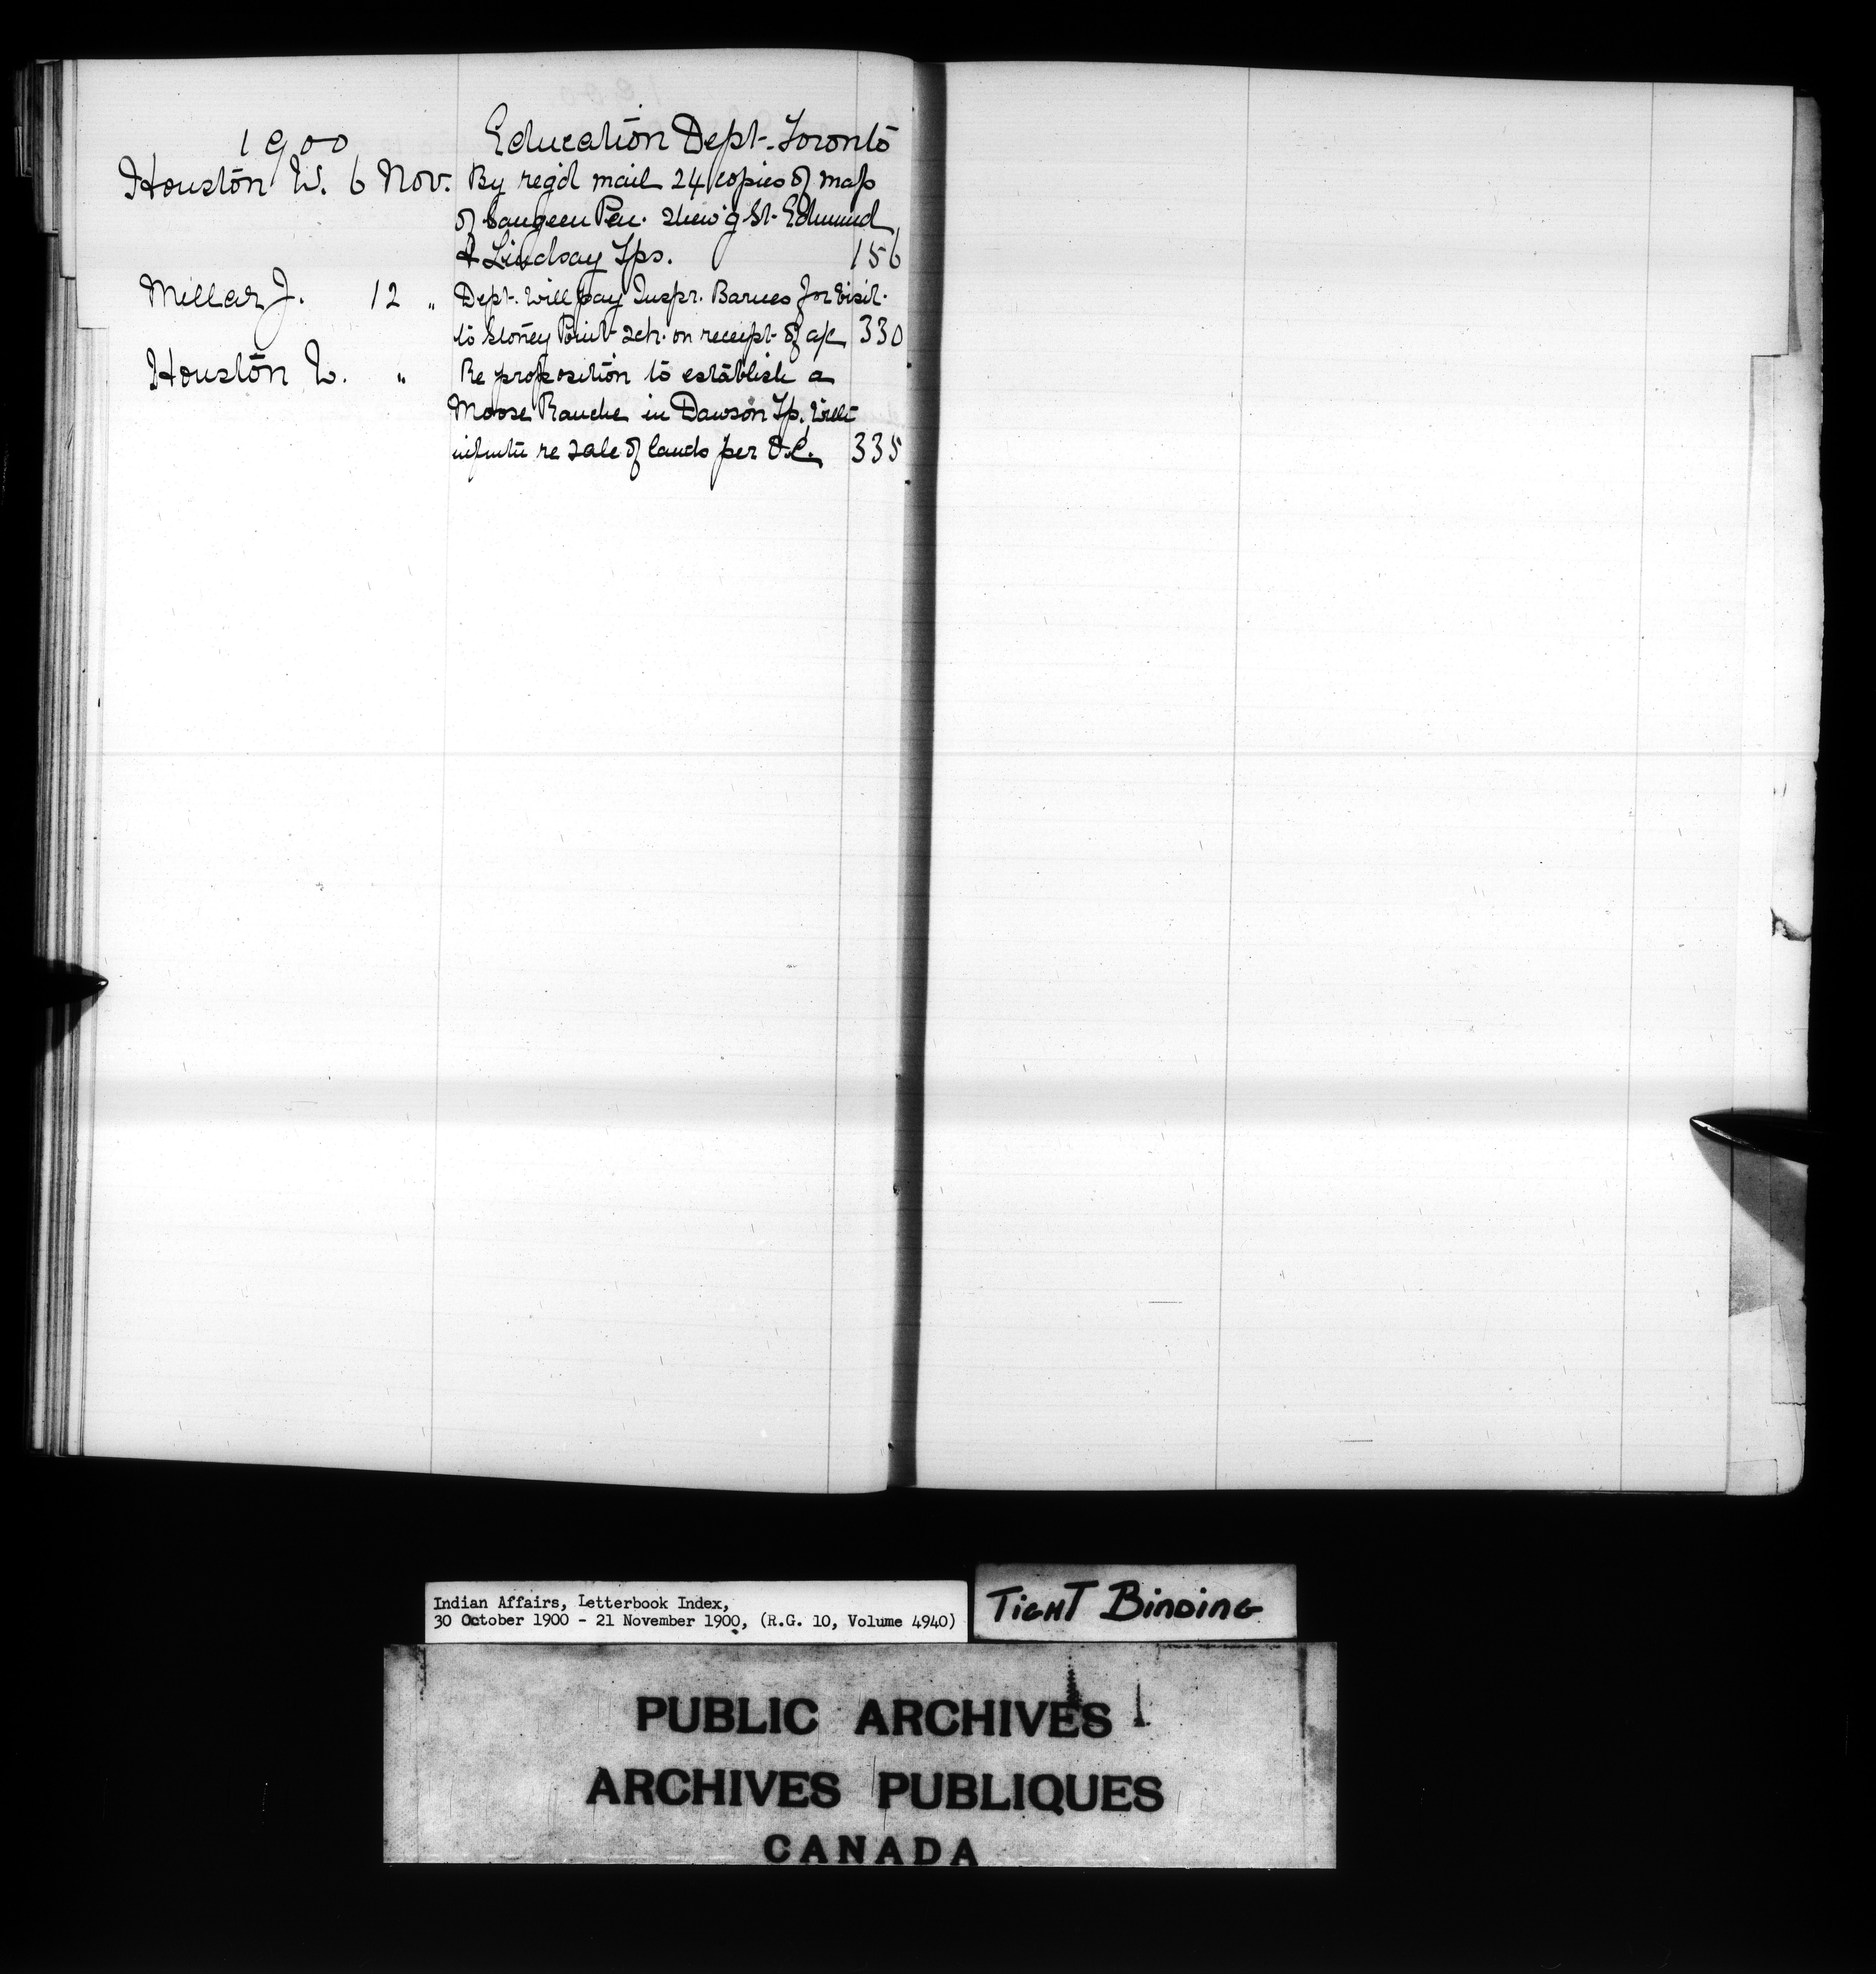 1900 Education Dept. Toronto
Houston W. 6 Nov. By reg'd mail 24 copies of map
of Saugeen Pen. shew'g St. Edmund
& Lindsay Tps. 156
Millar J. 12 " Dept. will pay Inspr. Barnes for visit
to Stoney Point sch. on receipt of a/c 330
Houston W. " Re proposition to establish a
Moose Ranche in Dawson Tp.
re sale of lands per O.C. 335
Indian Affairs, Letterbook Index,
30 October 1900 - 21 November 1900, (R.G. 10, Volume 4940)
TIGHT BINDING
PUBLIC ARCHIVES
ARCHIVES PUBLIQUES
CANADA